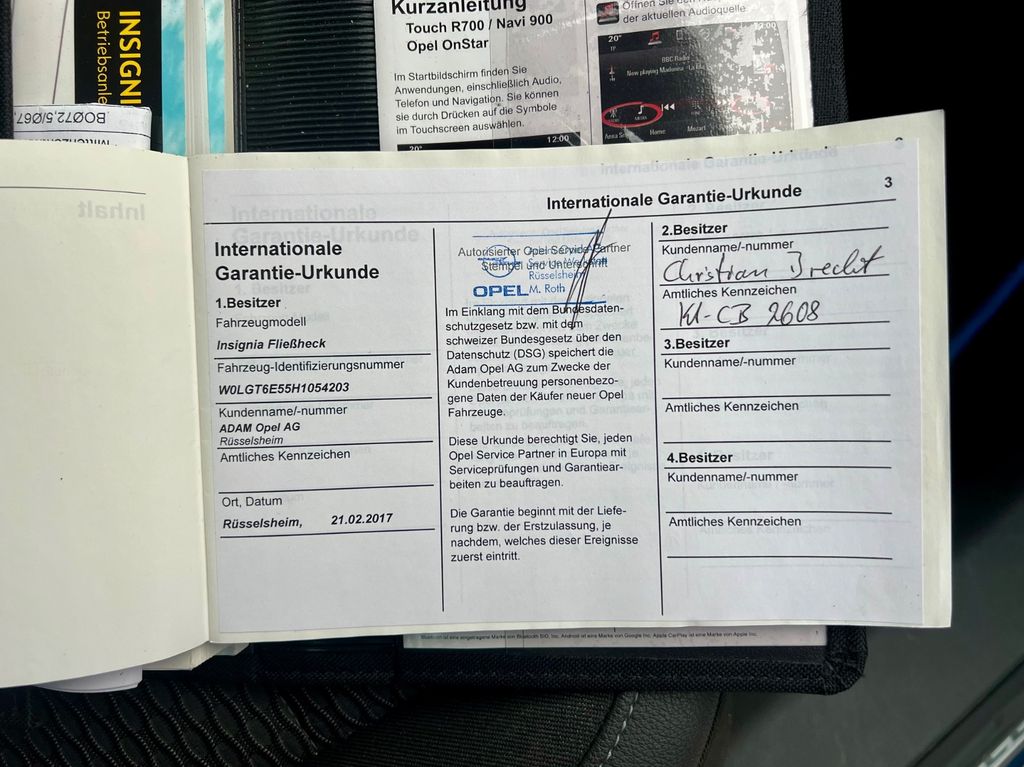 INSIGNI
Betriebsanle
BOØ72,5/Ø67,
Kurzanleitung
Touch R700 / Navi 900
Opel OnStar
Im Startbildschirm finden Sie
Anwendungen, einschließlich Audio,
Telefon und Navigation. Sie können
sie durch Drücken auf die Symbole
im Touchscreen auswählen.
20°
12:00
Öffnen Sie den
der aktuellen Audioquelle.
20°
12:00
TP
BBC Radio
Now playing Madonna
MEDIA
Home
Mozart
Inhalt
Internationale Garantie-Urkunde
3
Internationale
Garantie-Urkunde
1.Besitzer
Fahrzeugmodell
Insignia Fließheck
Fahrzeug-Identifizierungsnummer
W0LGT6E55H1054203
Kundenname/-nummer
ADAM Opel AG
Rüsselsheim
Amtliches Kennzeichen
Ort, Datum
Rüsselsheim, 21.02.2017
Autorisierter Opel Service Partner
Stempel und Unterschrift
Rüsselsheim
OPEL M. Roth
Im Einklang mit dem Bundesdaten-
schutzgesetz bzw. mit dem
schweizer Bundesgesetz über den
Datenschutz (DSG) speichert die
Adam Opel AG zum Zwecke der
Kundenbetreuung personenbezo-
gene Daten der Käufer neuer Opel
Fahrzeuge.
Diese Urkunde berechtigt Sie, jeden
Opel Service Partner in Europa mit
Serviceprüfungen und Garantiear-
beiten zu beauftragen.
Die Garantie beginnt mit der Liefe-
rung bzw. der Erstzulassung, je
nachdem, welches dieser Ereignisse
zuerst eintritt.
2.Besitzer
Kundenname/-nummer
Christian Brecht
Amtliches Kennzeichen
KI-CB 2608
3.Besitzer
Kundenname/-nummer
Amtliches Kennzeichen
4.Besitzer
Kundenname/-nummer
Amtliches Kennzeichen
Bluetooth ist eine eingetragene Marke von Bluetooth SIG, Inc. Android ist eine Marke von Google Inc. Apple CarPlay ist eine Marke von Apple Inc.